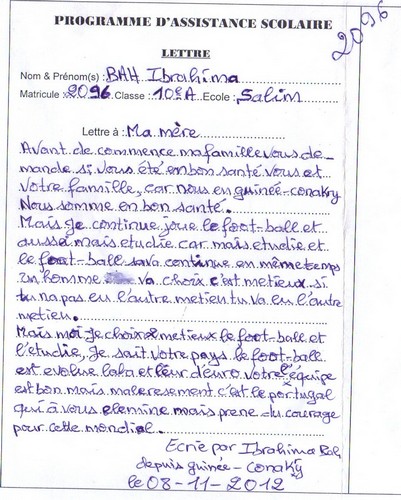 PROGRAMME D'ASSISTANCE SCOLAIRE
2096
LETTRE
Nom & Prénom(s) : BAH Ibrahima
Matricule : 2096 Classe : 10e A Ecole : Salim
Lettre à : Ma mère
Avant de commence ma famille vous de-
mande si vous été en bon santé vous et
votre famille, car nous en guinée-conakry
Nous somme en bon santé.
Mais je continue joue le foot-ball et
aussé mais etudie car mais etudie et
le foot-ball sava continue en même temps
un homme va choix c'est metieux si
tu na pas eu l'autre metieu tu va eu l'autre
metieu.
Mais moi je choix 2 metieux le foot-ball et
l'étudie, Je sait votre pays le foot-ball
est evolue laba et leur d'euro votre l'équipe
est bon mais maleresement c'est le portugal
qui à vous elemine mais prene du courage
pour cette mondial.
Ecrie par Ibrahima Bah
depuis guinée - Conakry
le 08-11-2012